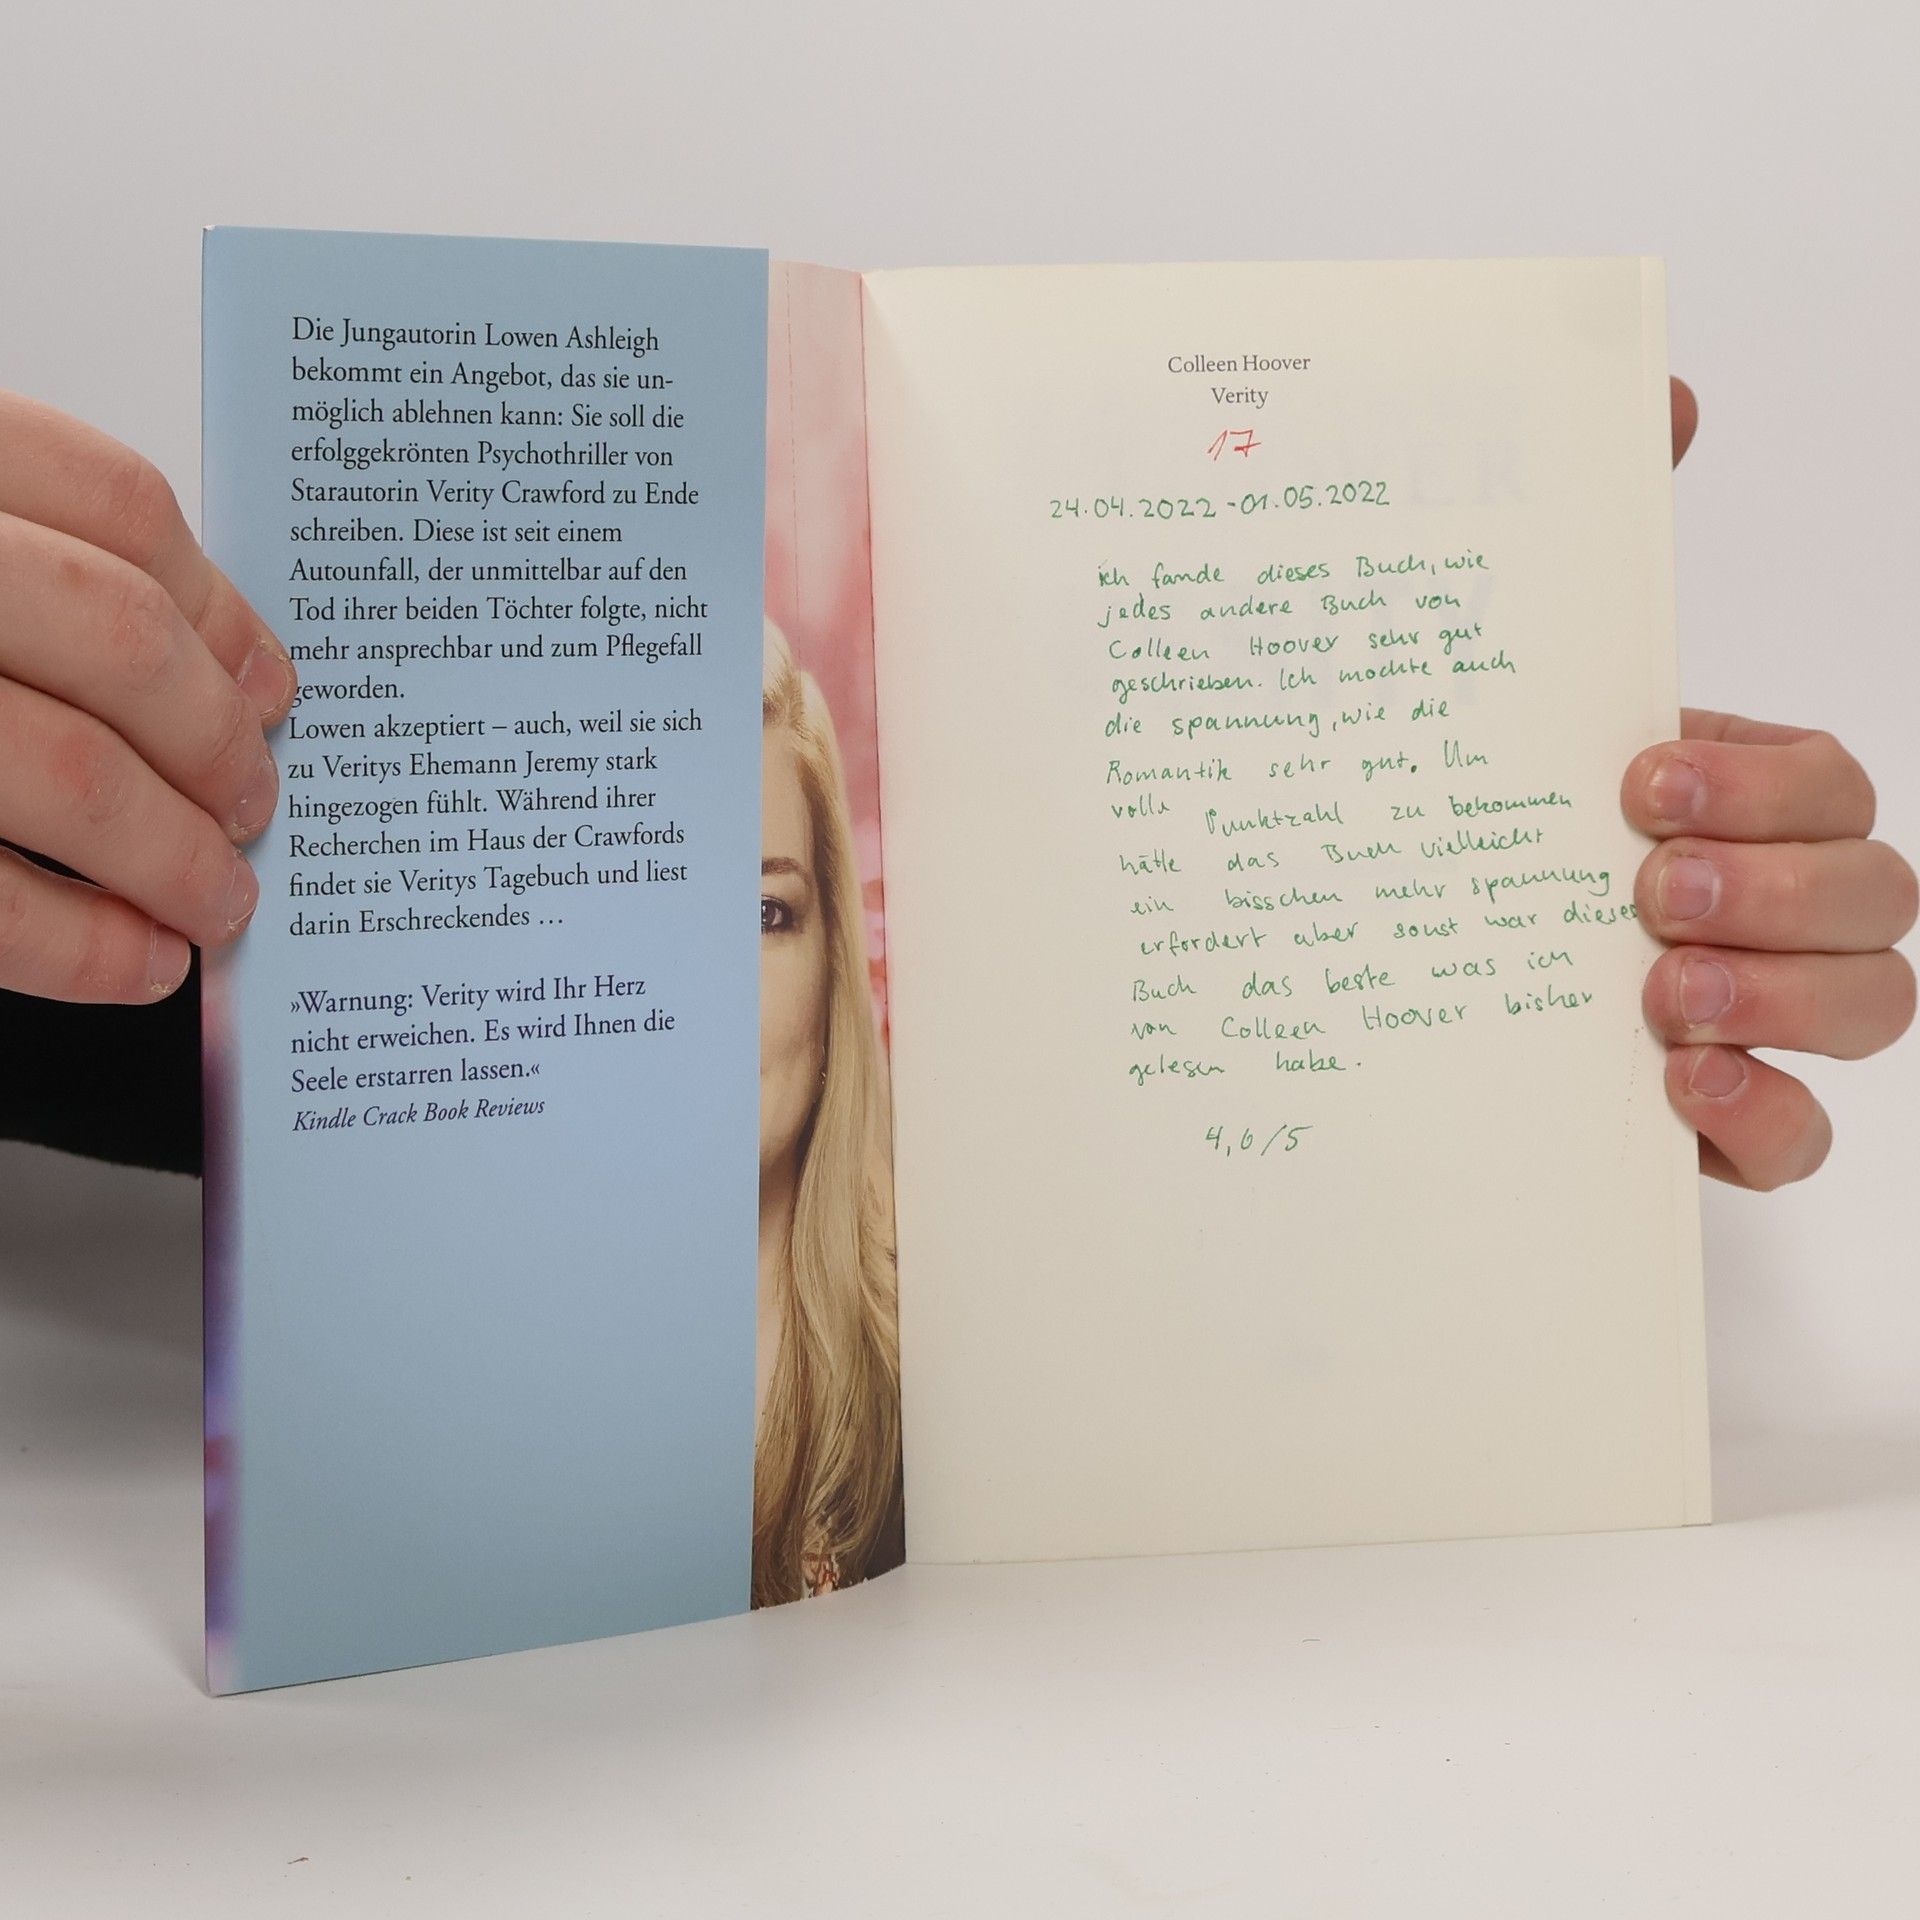 Die Jungautorin Lowen Ashleigh
bekommt ein Angebot, das sie un-
möglich ablehnen kann: Sie soll die
erfolggekrönten Psychothriller von
Starautorin Verity Crawford zu Ende
schreiben. Diese ist seit einem
Autounfall, der unmittelbar auf den
Tod ihrer beiden Töchter folgte, nicht
mehr ansprechbar und zum Pflegefall
geworden.
Lowen akzeptiert – auch, weil sie sich
zu Veritys Ehemann Jeremy stark
hingezogen fühlt. Während ihrer
Recherchen im Haus der Crawfords
findet sie Veritys Tagebuch und liest
darin Erschreckendes …
»Warnung: Verity wird Ihr Herz
nicht erweichen. Es wird Ihnen die
Seele erstarren lassen.«
Kindle Crack Book Reviews
Colleen Hoover
Verity
17
24.04.2022 - 01.05.2022
ich fande dieses Buch, wie
jedes andere Buch von
Colleen Hoover sehr gut
geschrieben. Ich mochte auch
die spannung, wie die
Romantik sehr gut. Um
volle Punktzahl zu bekommen
hätte das Buch vielleicht
ein bisschen mehr spannung
erfordert aber sonst war dieses
Buch das beste was ich
von Colleen Hoover bisher
gelesen habe.
4,6/5